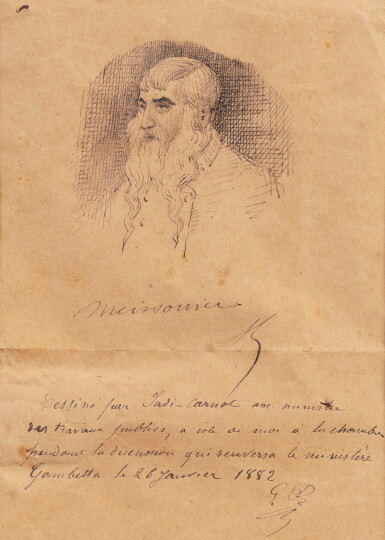 Meissonier
Dessiné par Sadi-Carnot anc ministre
des travaux publics, a coté de moi à la chambre
pendant la discussion qui renversa le ministère
Gambetta le 26 Janvier 1882